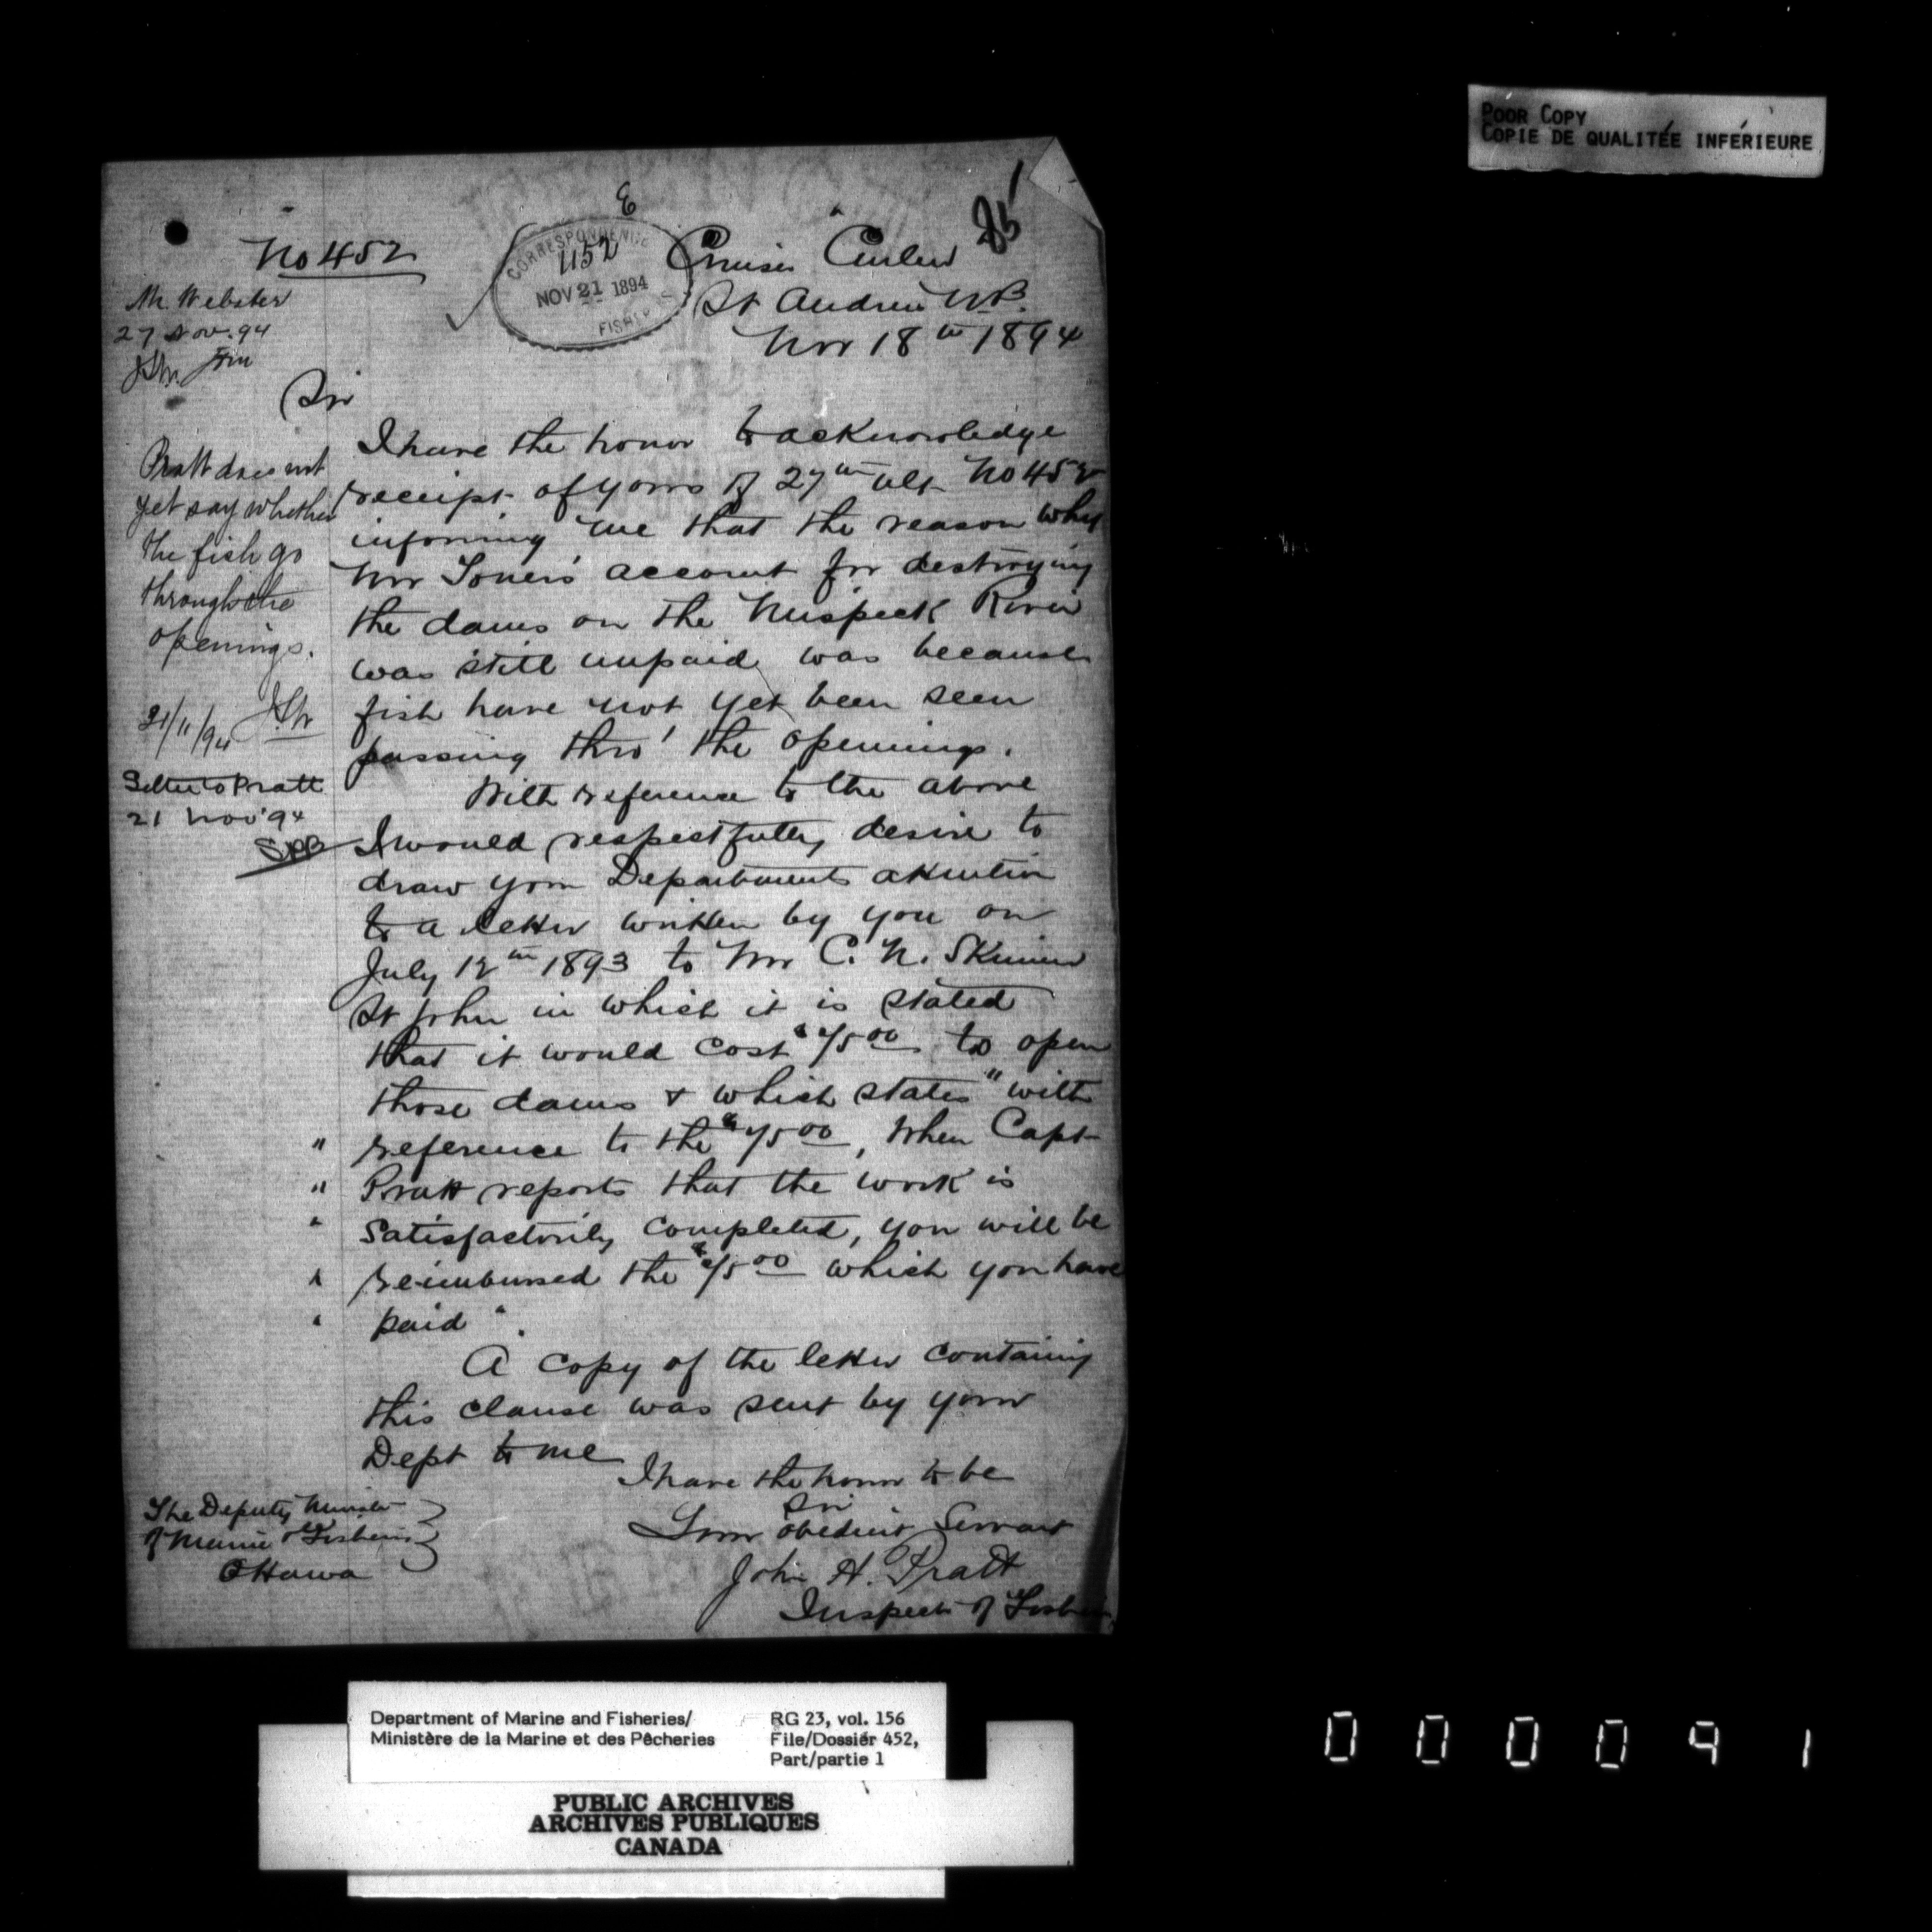 POOR COPY
COPIE DE QUALITÉE INFÉRIEURE
E
No 452
CORRESPONDENCE
1152
NOV 21 1894
FISHERIES
Cruiser Curlew
St Andrews N.B.
Nov 18th 1894
Mr. Webster
27 Nov. 94
Sir
I have the honor to acknowledge
receipt of yours of 27th ult No 452
informing me that the reason why
Mr account for destroying
the dams on the Muspeck River
was still unpaid was because
fish have not yet been seen
passing thro' the openings.
With reference to the above
I would respectfully desire to
draw your Departments attention
to a letter written by you on
July 12th 1893 to Mr C. N. Skinner
St John in which it is stated
that it would cost $75 00 to open
those dams & which states "with
" reference to the $75 00, when Capt
" Pratt reports that the work is
" satisfactorily completed, you will be
" reimbursed the $75 00 which you have
" paid".
A copy of the letter containing
this clause was sent by your
Dept to me
I have the honor to be
Sir
Your obedient Servant
John H. Pratt
Inspector of Fisheries
The Deputy Minister
of Marine & Fisheries
Ottawa
Pratt does not
yet say whether
the fish go
through the
openings.
21/11/94
Letter to Pratt
21 Nov '94
SPB
Department of Marine and Fisheries/
Ministère de la Marine et des Pêcheries
RG 23, vol. 156
File/Dossier 452,
Part/partie 1
PUBLIC ARCHIVES
ARCHIVES PUBLIQUES
CANADA
000091